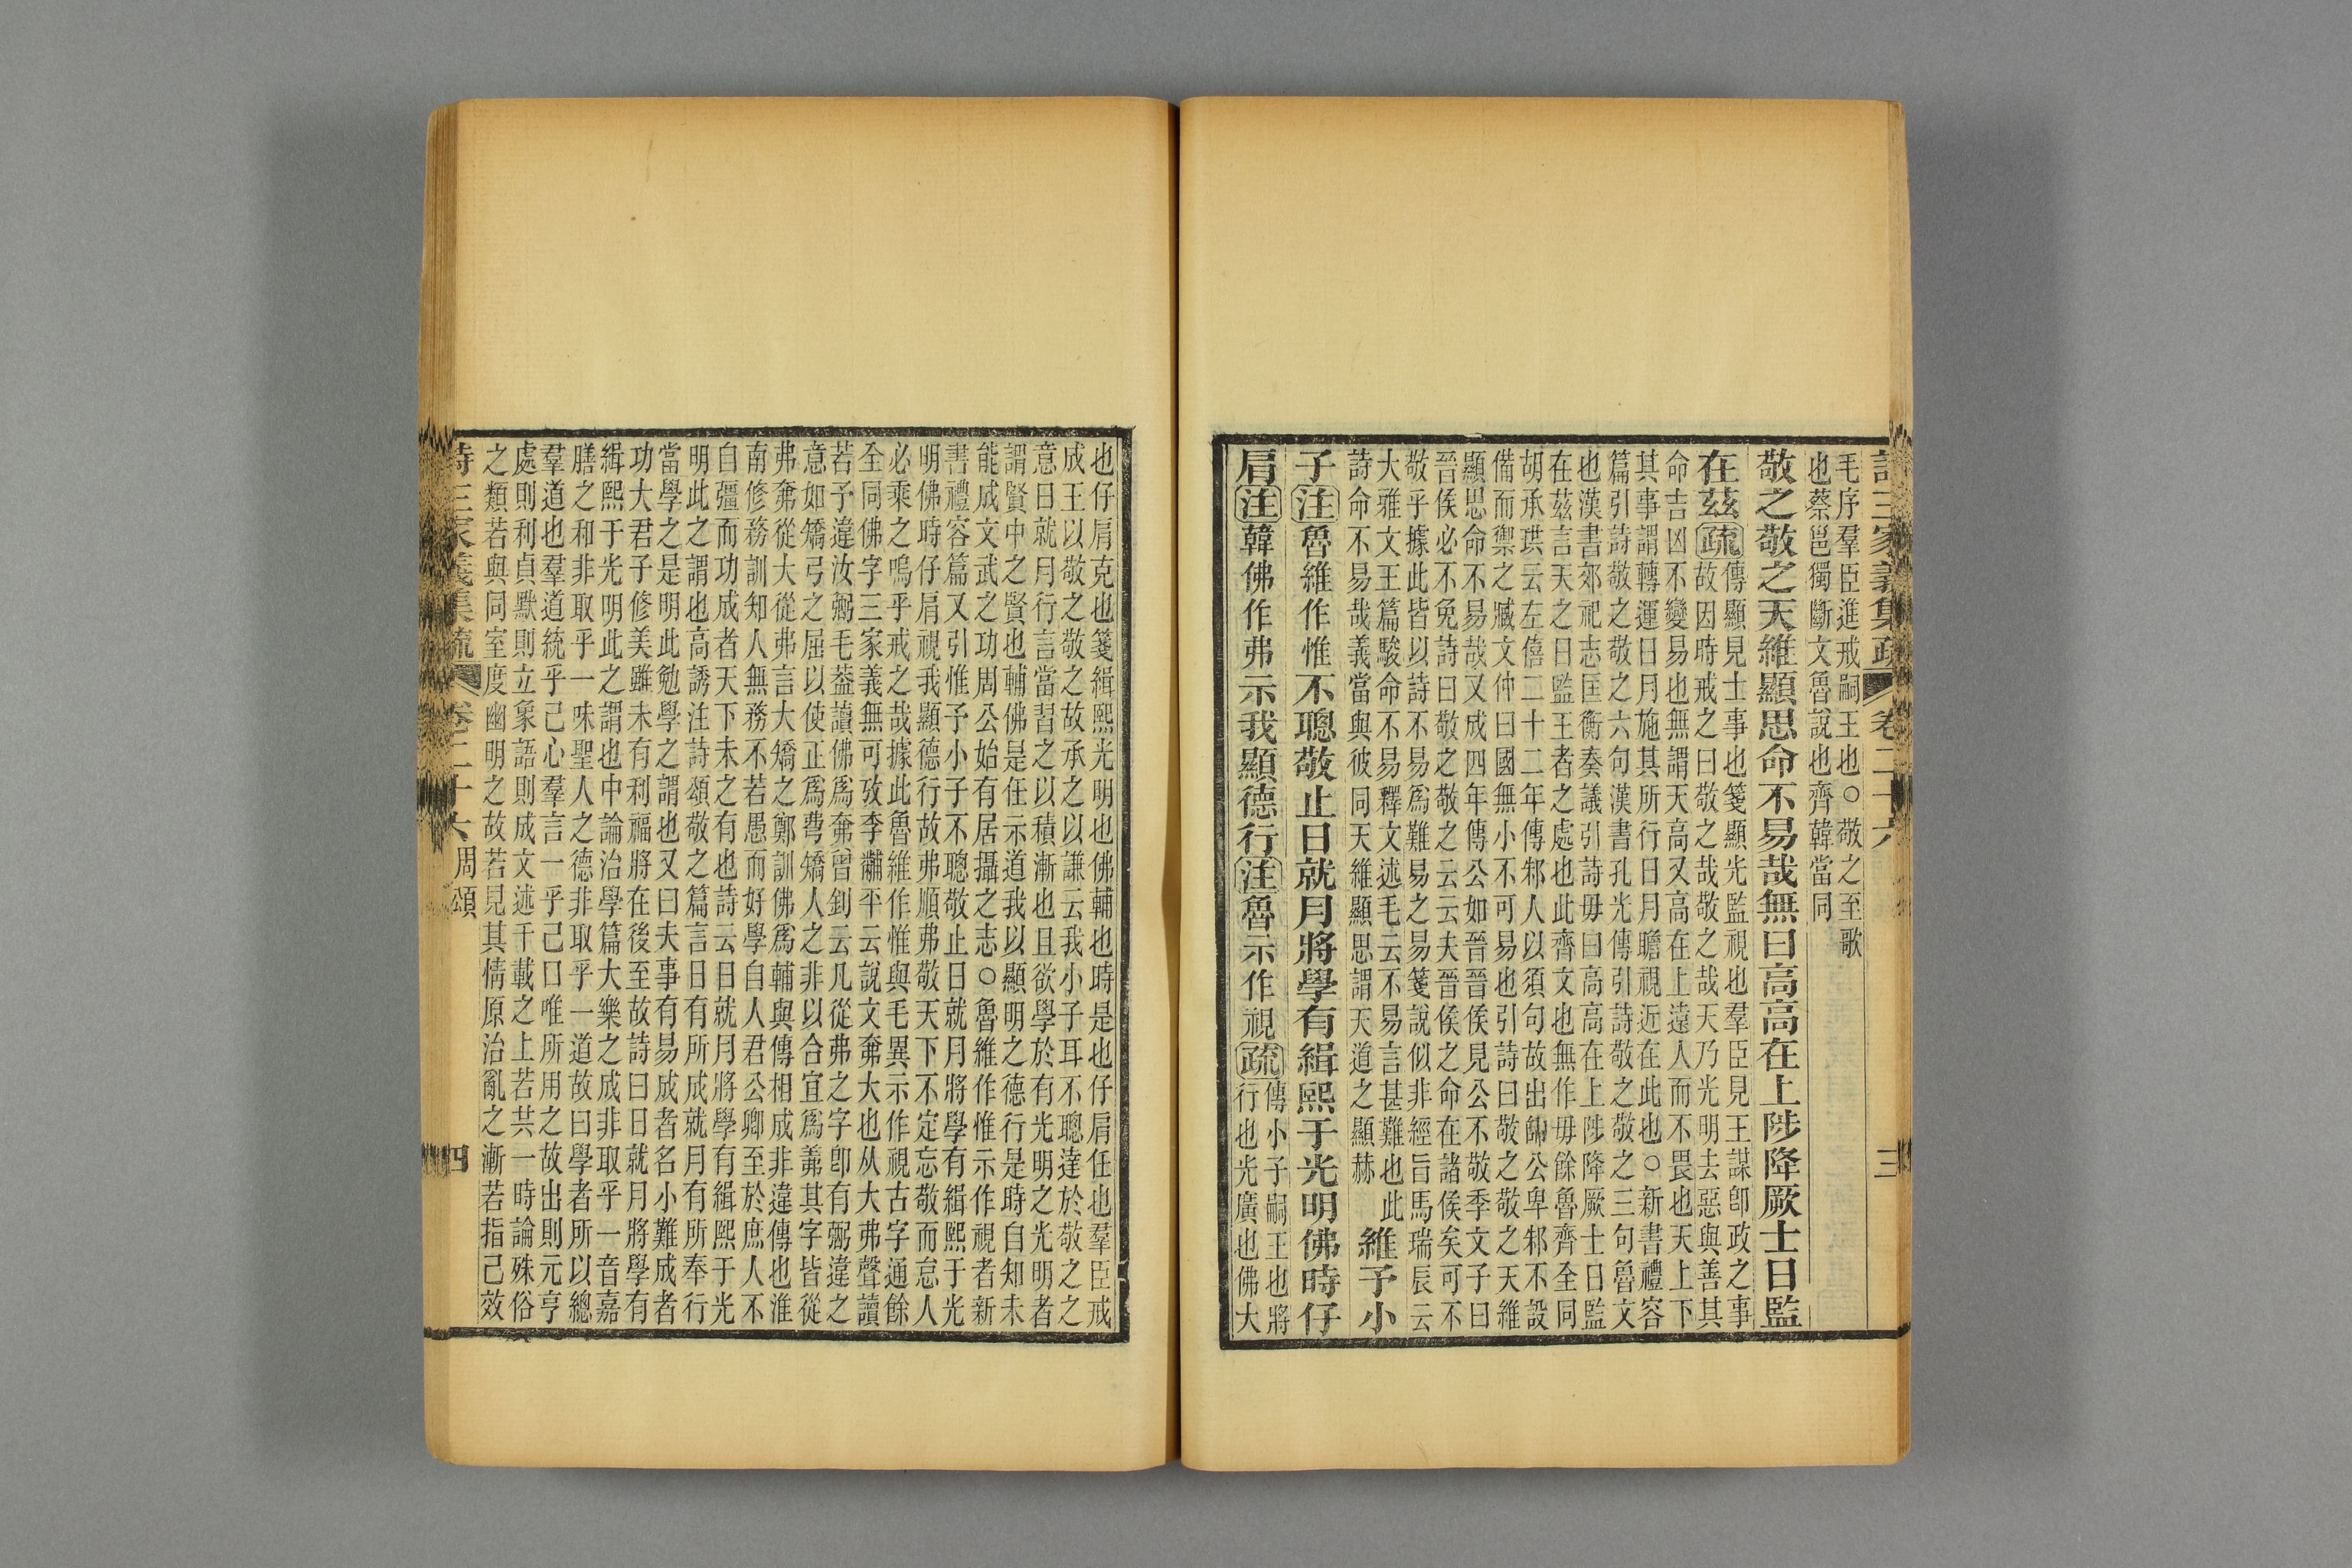 詩三家義集疏 卷二十六 三
毛序羣臣進戒嗣王也○敬之至歌
也蔡邕獨斷文魯說也齊韓當同
敬之敬之天維顯思命不易哉無曰高高在上陟降厥士日監
在茲疏
傳顯見士事也箋顯光監視也羣臣見王謀卽政之事
故因時戒之曰敬之哉敬之哉天乃光明去惡與善其
命吉凶不變易也無謂天高又高在上遠人而不畏也天上下
其事謂轉運日月施其所行日月瞻視近在此也○新書禮容
篇引詩敬之敬之六句漢書孔光傳引詩敬之敬之三句魯文
也漢書郊祀志匡衡奏議引詩毋曰高高在上陟降厥士日監
在茲言天之日監王者之處也此齊文也無作毋餘魯齊全同
胡承珙云左僖二十二年傳邾人以須句故出師公卑邾不設
備而禦之臧文仲曰國無小不可易也引詩曰敬之敬之天維
顯思命不易哉又成四年傳公如晉晉侯見公不敬季文子曰
晉侯必不免詩曰敬之敬之云云夫晉侯之命在諸侯矣可不
敬乎據此皆以詩不易爲難易之易箋說似非經旨馬瑞辰云
大雅文王篇駿命不易釋文述毛云不易言甚難也此
詩命不易哉義當與彼同天維顯思謂天道之顯赫
維予小
子注魯維作惟不聰敬止日就月將學有緝熙于光明佛時仔
肩注韓佛作弗示我顯德行注魯示作視疏
傳小子嗣王也將
行也光廣也佛大
也仔肩克也箋緝熙光明也佛輔也時是也仔肩任也羣臣戒
成王以敬之敬之故承之以謙云我小子耳不聰達於敬之之
意日就月行言當習之以積漸也且欲學於有光明之光明者
謂賢中之賢也輔佛是任示道我以顯明之德行是時自知未
能成文武之功周公始有居攝之志○魯維作惟示作視者新
書禮容篇又引惟予小子不聰敬止日就月將學有緝熙于光
明佛時仔肩視我顯德行故弗順弗敬天下不定忘敬而怠人
必乘之嗚乎戒之哉據此魯維作惟與毛異示作視古字通餘
全同佛字三家義無可攷李黼平云說文奔大也从大弗聲讀
若予違汝弼毛葢讀佛爲奔曾釗云凡從弗之字卽有弼違之
意如矯弓之屈以使正爲彆矯人之非以合宜爲茀其字皆從
弗奔從大從弗言大矯之鄭訓佛爲輔與傳相成非違傳也淮
南修務訓知人無務不若愚而好學自人君公卿至於庶人不
自彊而功成者天下未之有也詩云日就月將學有緝熙于光
明此之謂也高誘注詩頌敬之篇言日有所成就月有所奉行
當學之是明此勉學之謂也又曰夫事有易成者名小難成者
功大君子修美雖未有利福將在後至故詩曰日就月將學有
緝熙于光明此之謂也中論治學篇大樂之成非取乎一音嘉
膳之和非取乎一味聖人之德非取乎一道故曰學者所以總
羣道也羣道統乎己心羣言一乎己口唯所用之故出則元亨
處則利貞默則立象語則成文述千載之上若共一時論殊俗
之類若與同室度幽明之故若見其情原治亂之漸若指己效
詩三家義集疏 卷二十六 周頌 四